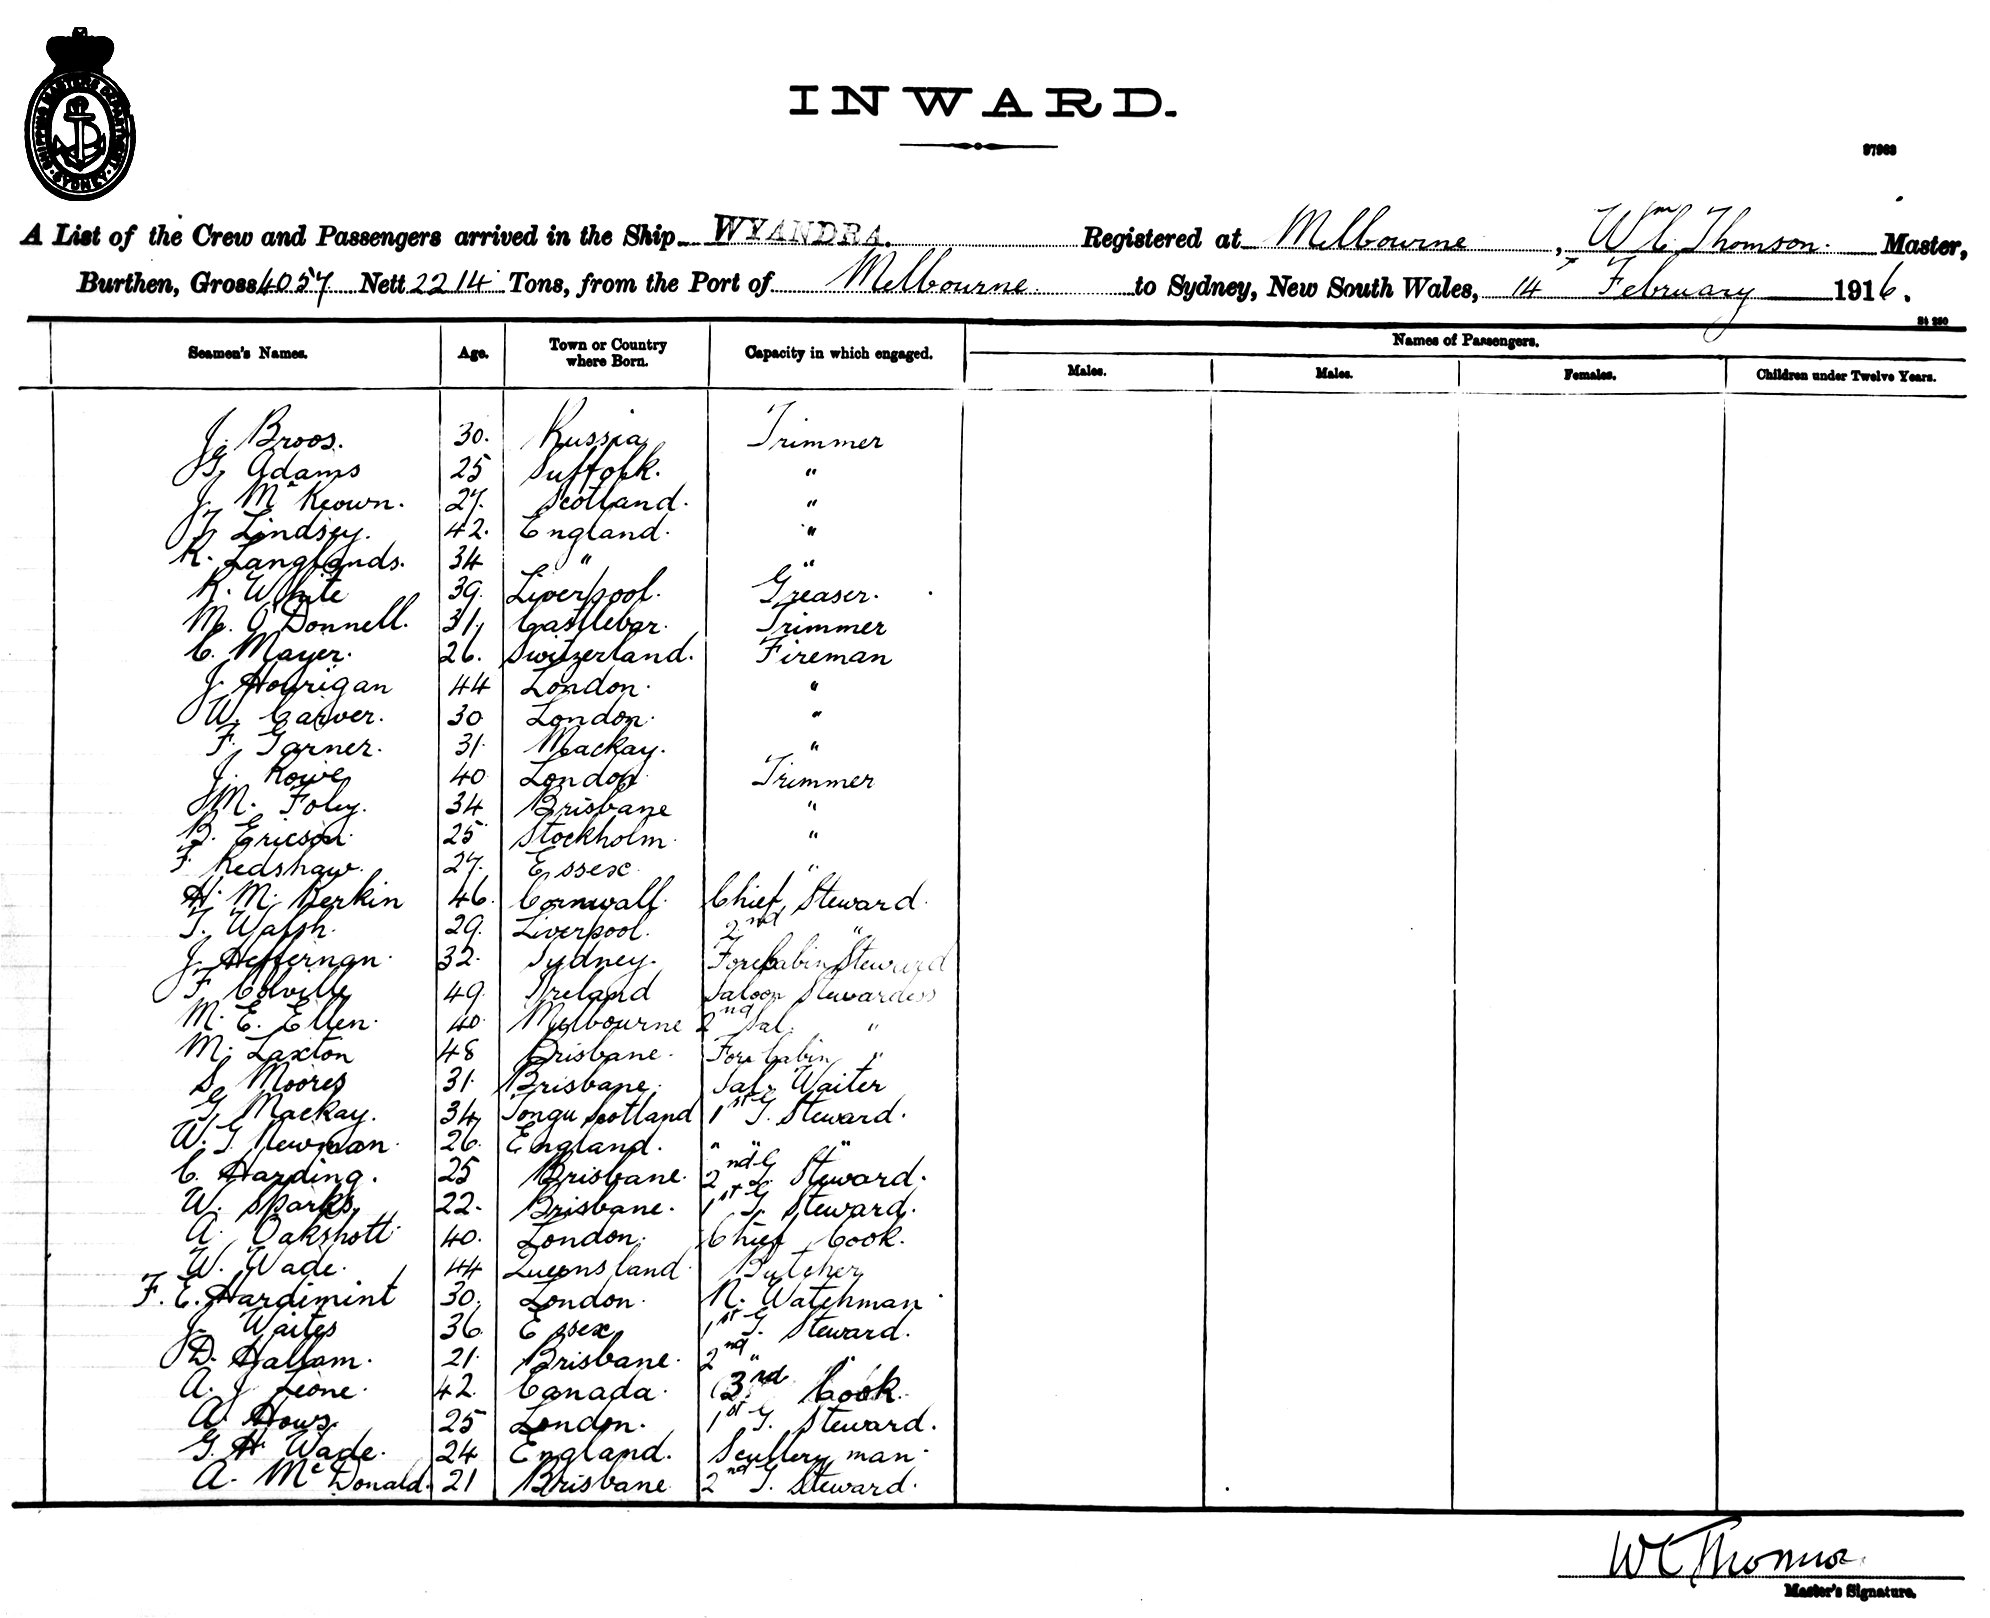 SHIPPING MASTERS DEPARTMENT. SYDNEY.
INWARD.
97963
A List of the Crew and Passengers arrived in the Ship WYANDRA. Registered at Melbourne, Wm C Thomson. Master,
Burthen, Gross 4057 Nett 2214 Tons, from the Port of Melbourne. to Sydney, New South Wales, 14 February 1916.
Seamen's Names. Age. Town or Country where Born. Capacity in which engaged. Names of Passengers.
Males. Males. Females. Children under Twelve Years.
J. Broos. 30. Russia Trimmer
G. Adams 25 Suffolk. "
J. McKeown. 27. Scotland. "
F. Lindsey. 42. England. "
R. Langlands. 34 " "
R. White 39. Liverpool. Greaser.
M. O'Donnell. 31. Castlebar. Trimmer
C. Mayer. 26. Switzerland. Fireman
J. Hourigan 44 London. "
W. Carver. 30 London. "
F. Garner. 31. Mackay. "
J. Rowe 40 London. Trimmer
M. Foley. 34 Brisbane "
B. Ericson. 25 Stockholm. "
F Redshaw. 27. Essex "
H. M. Kerkin 46. Cornwall. Chief Steward.
T. Walsh. 29. Liverpool. 2nd "
J. Heffernan. 32. Sydney. Fore Cabin Steward
F Colville 49. Ireland Saloon Stewardess
M. E. Ellen. 40. Melbourne 2nd Sal. "
M. Laxton 48 Brisbane. Fore Cabin "
S. Moores 31. Brisbane. Sal. Waiter
G. Mackay. 34, Tongu Scotland 1st G. Steward.
W. G. Newman. 26. England. " " "
C. Harding. 25 Brisbane. 2nd G. Steward.
W. Sparks, 22. Brisbane. 1st G. Steward.
A. Oakshott. 40. London. Chief Cook.
W. Wade. 44 Queensland. Butcher
F. E. Hardimint 30. London. N. Watchman.
J. Waites 36. Essex 1st G. Steward.
D. Hallam. 21. Brisbane. 2nd " "
A. J Leone. 42. Canada. 3rd Cook.
A. Hows. 25 London. 1st G. Steward.
G. H. Wade. 24 England. Scullery man.
A. McDonald. 21 Brisbane 2nd G. Steward.
W C Thomson.
Master's Signature.